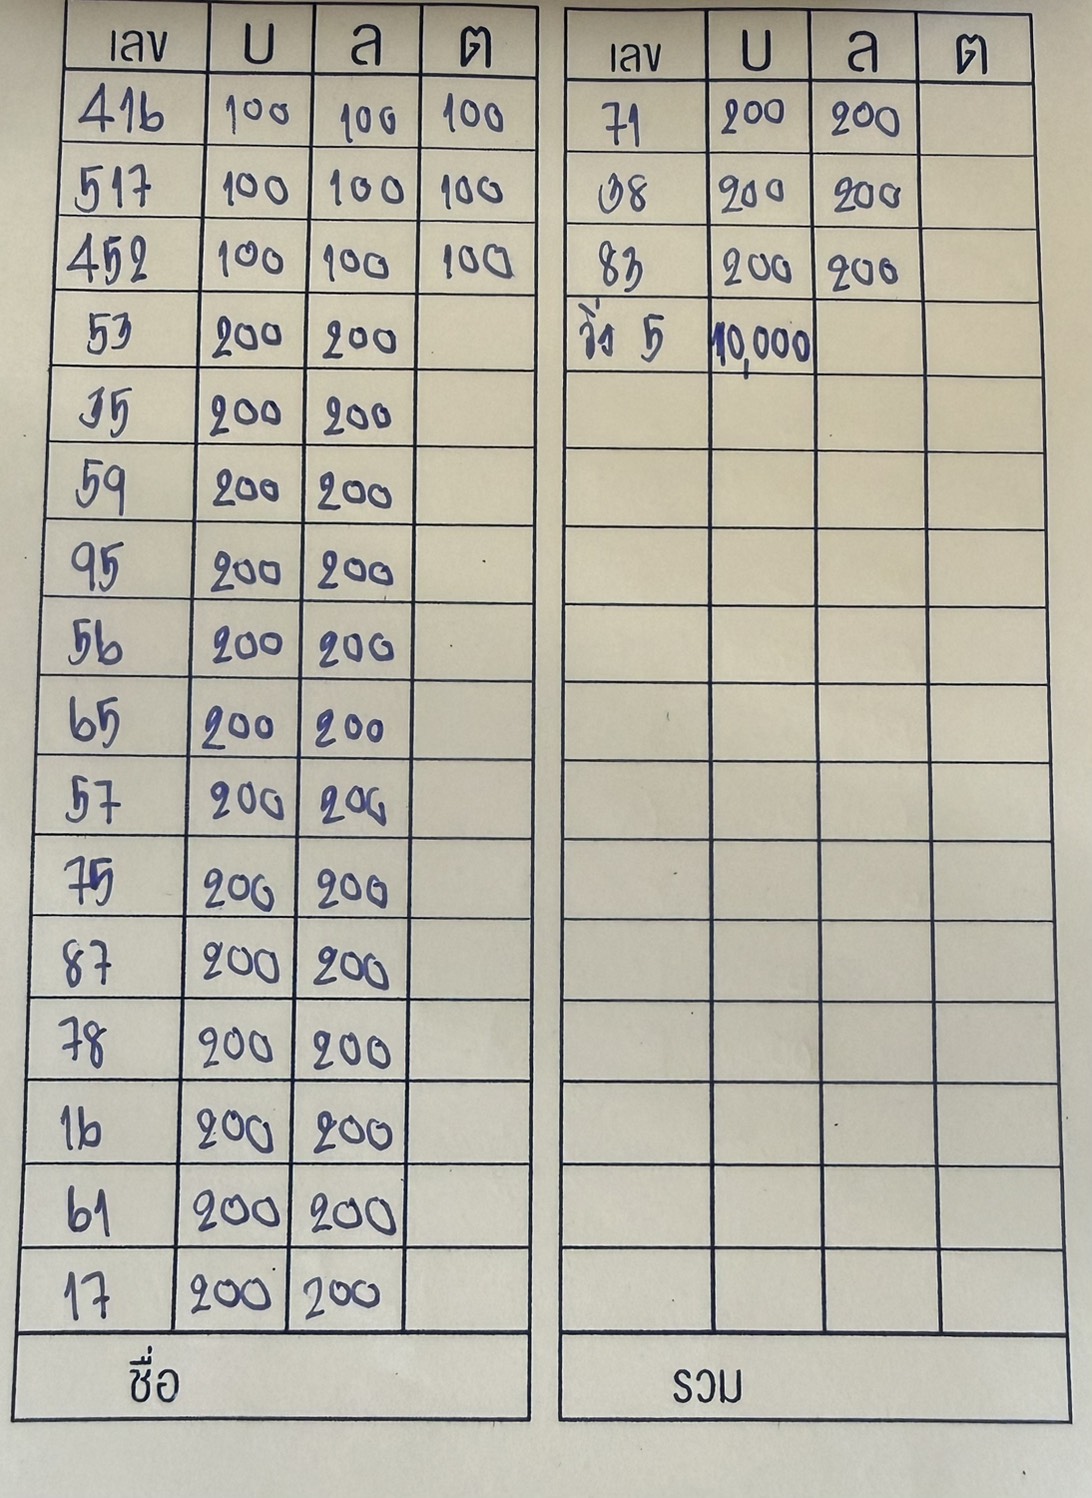 เลข บ ล ต
416 100 100 100
517 100 100 100
452 100 100 100
53 200 200
35 200 200
59 200 200
95 200 200
56 200 200
65 200 200
57 200 200
75 200 200
87 200 200
78 200 200
16 200 200
61 200 200
17 200 200
ชื่อ
เลข บ ล ต
71 200 200
38 200 200
83 200 200
วิ่ง 5 10,000
รวม